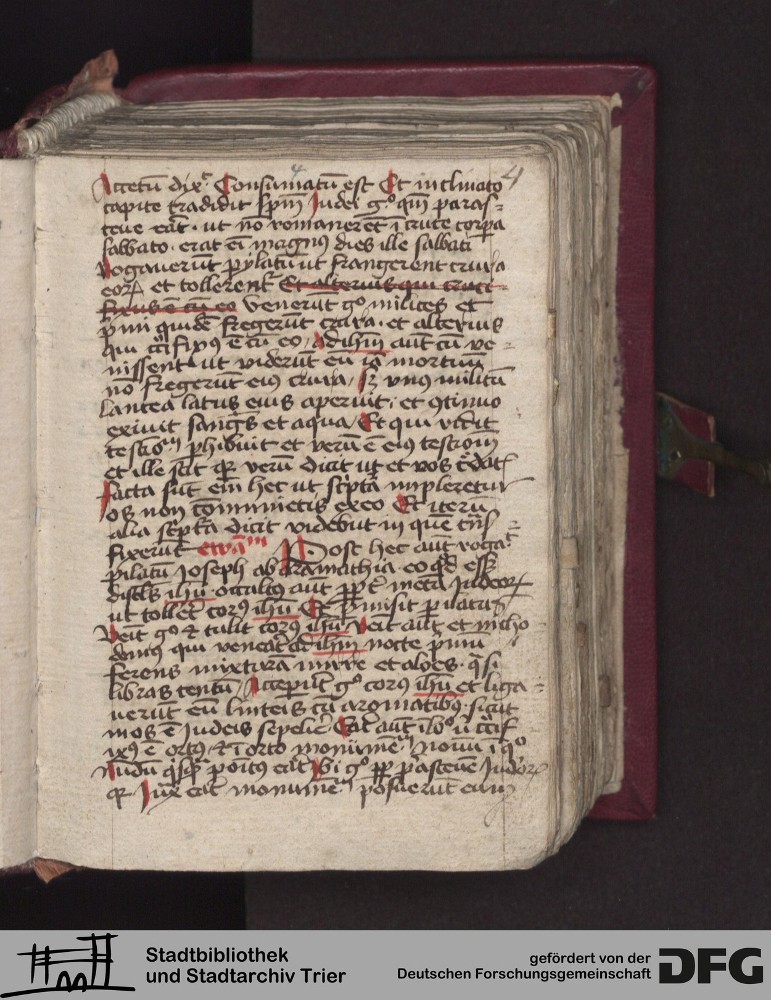 4
Accetū dix̄ Consumatū est Et inclinato
capite tradidit spm̄ Judei gº qm̄ paras-
ceue eāt · ut nō romanerēt ī cruce corpa
sabbato · erat eī magnꝰ dies ille sabbati
Rogauerūt pylatū ut frangerent crura
eorꝝ et tollerent̄ Et alterius qui cruci
fixus ē cū eo venerūt gº milites et
pimi quidē fregerūt crura · et alterius
qui cͨifixꝰ ē cū eo / Ad ihm̄ aūt cū ve-
nissent ut viderūt eū iā mortuū
nō fregerūt eius crura / Sꝫ vnꝰ militū
lancea latus eius aperuit · et ꝯtinuo
exiuit sangͥs et aqua / Et qui vidit
testioīū phibuit et verū ē eiꝰ testiom
et ille scit qꝛ verū dicit ut et vos cͤdatͥ
facta sūt eīm hec ut scͥptā impleretur
os non cōminuetis ex eo Et iterū
alia scͥptā dicit videbūt in quē tͥns-
fixerūt ewāᵐ Post hec aūt rogaͭ
pilatū Joseph ab aramathia · eo qd eēt
discͥls ihū · occultꝰ aūt ꝓpt̄ metū Judeorꝝ
ut tolleͤt corpꝰ ihū Et pͥmisit pilatus
Veīt gº ⁊ tulit corpꝰ ihū Veīt aūt et nicho
demꝰ qui veneͣt ad ihm̄ nocte pͥmū
ferens mixturā mirre et aloes · qͣsi
libras centū / Acceperūt gº corpꝰ ihū et liga-
uerūt eū linteis cū aromatibꝰ · sicut
mos ē Judeis sepelire Erat aūt ībº ū cͨif
ixꝰ ē ortꝰ · ⁊ ī orto monumē nouū ī qº
Nōdū qͥsqͣ poītꝰ eāt Ibi gº ꝓp pasceuē Judeorꝝ
qꝛ Iuxͣ eāt monumē posuerūt eum
Stadtbibliothek
und Stadtarchiv Trier
gefördert von der
Deutschen Forschungsgemeinschaft
DFG